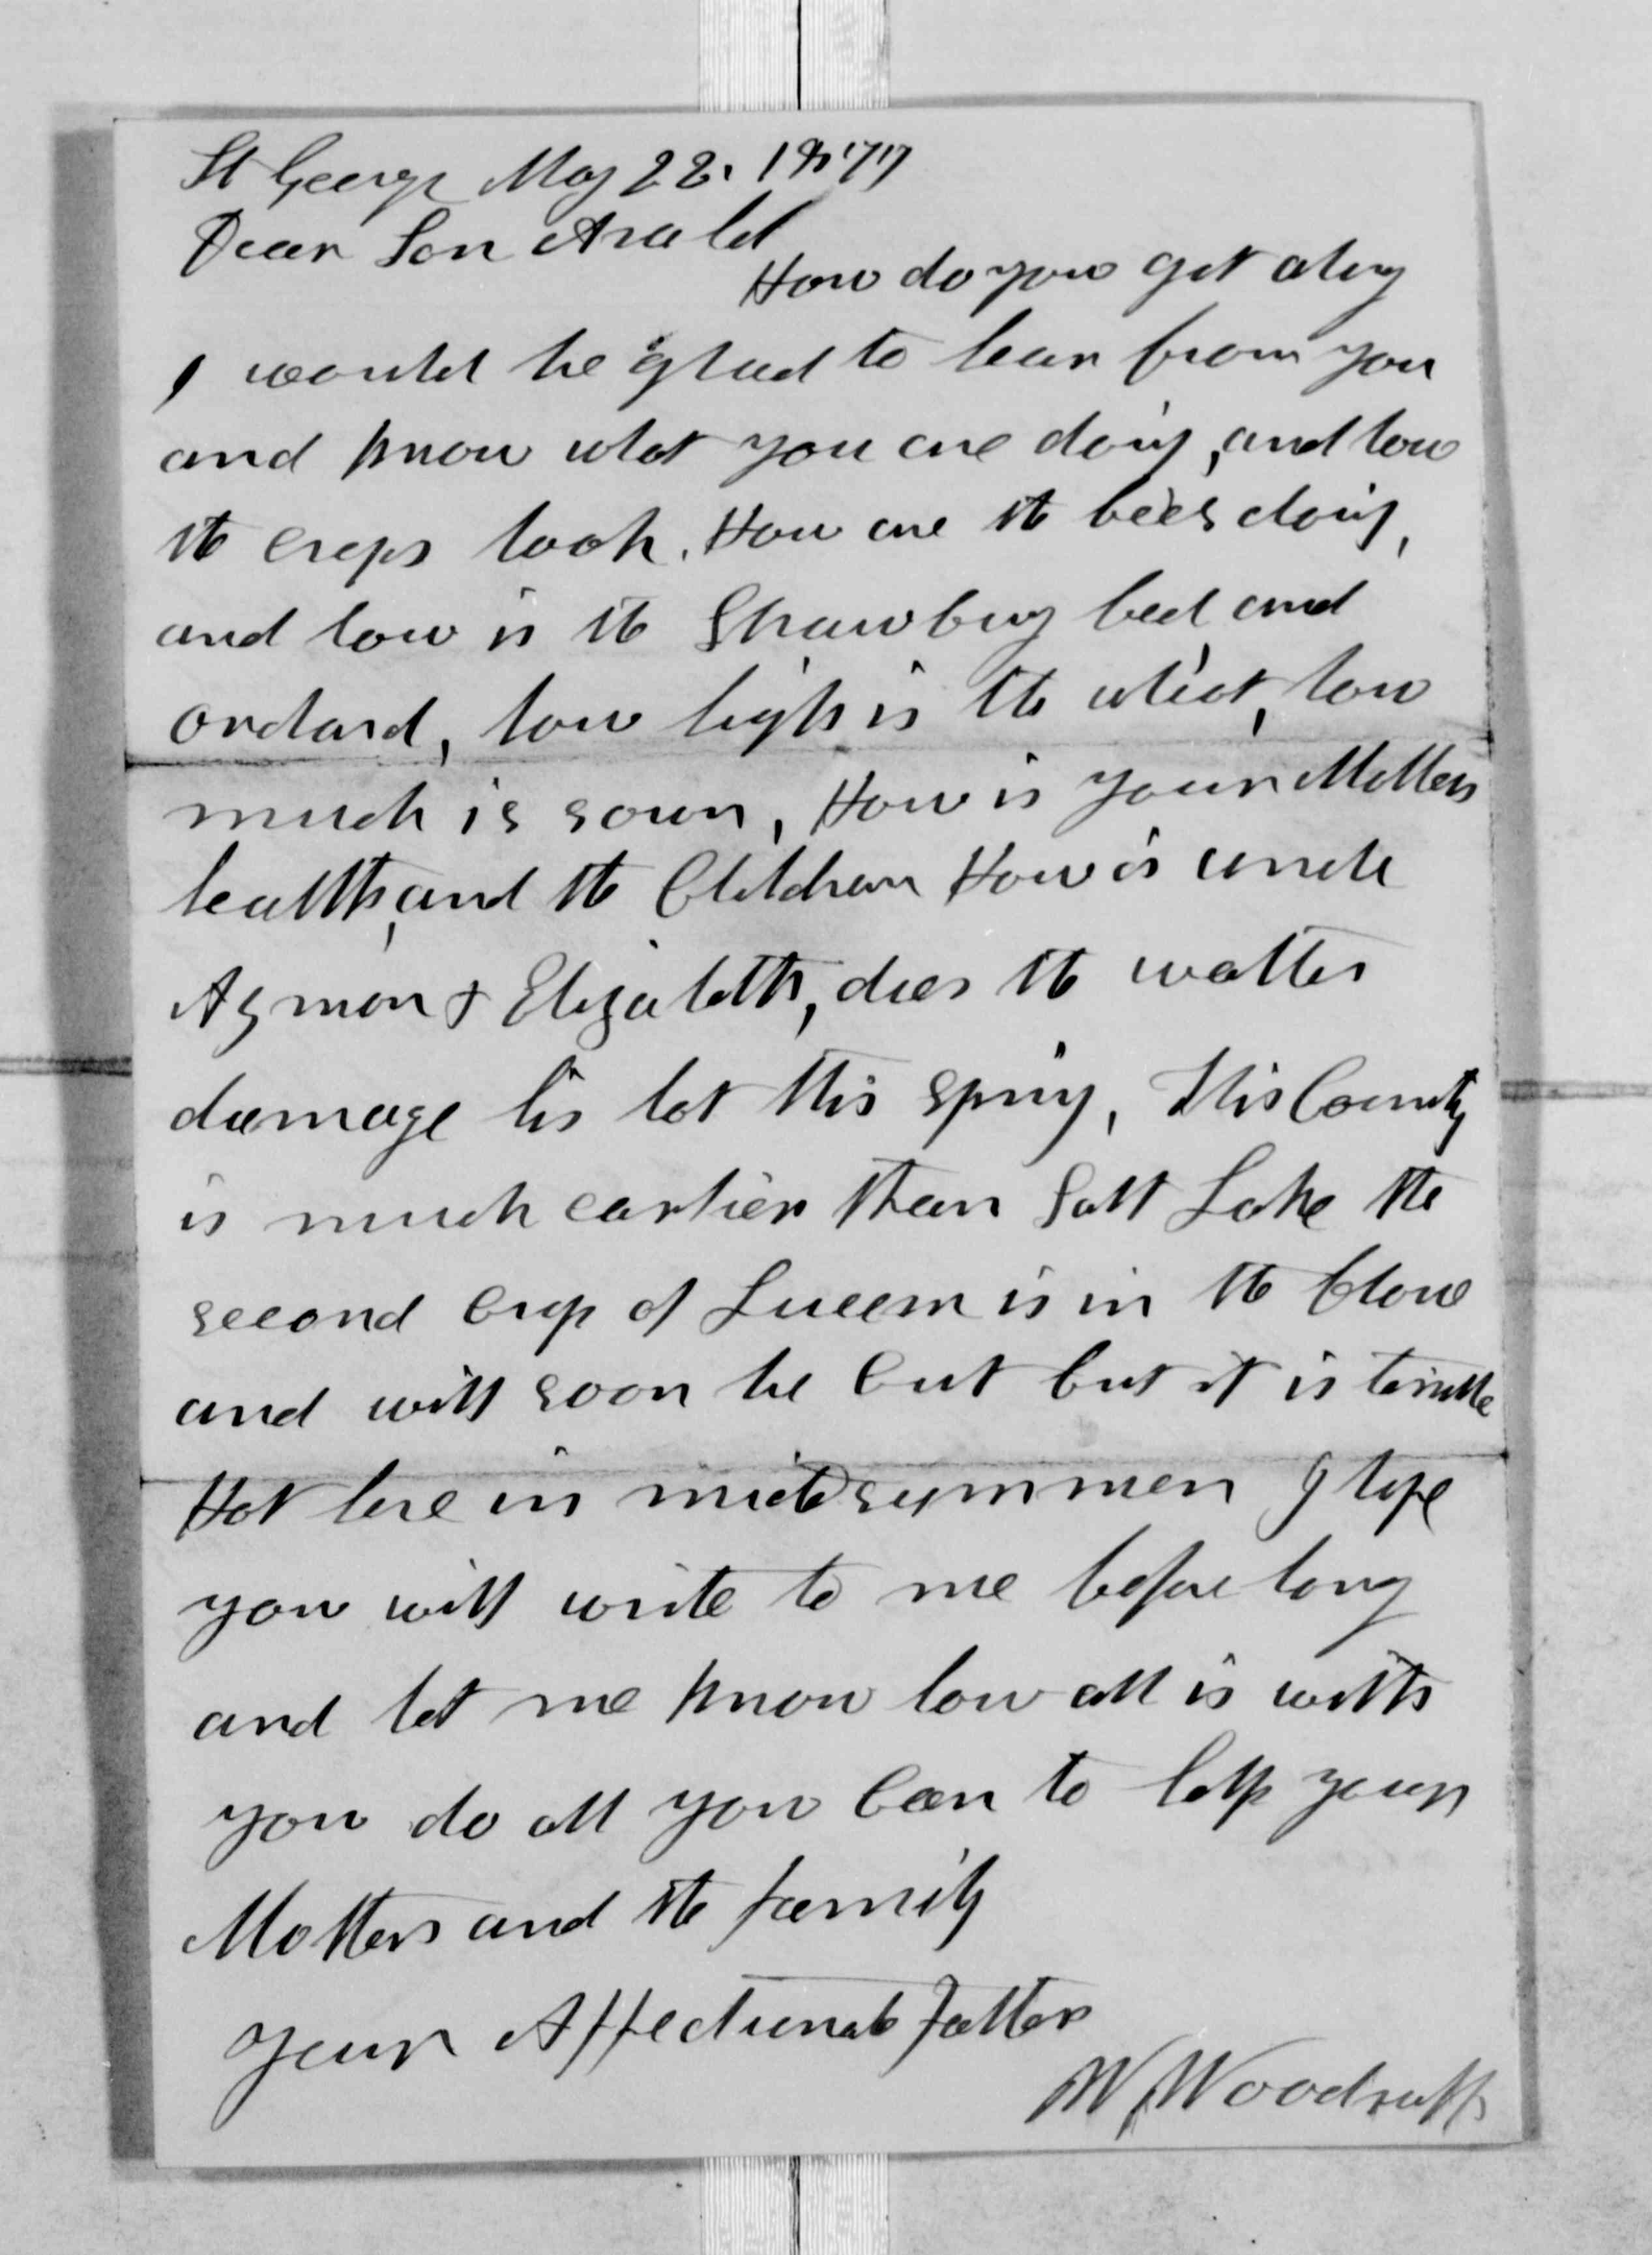 St George May 22. 1877
Dear Son Asahel
How do you get along
I would be glad to hear from you
and know what you are doing, and how
the crops look. How are the bees doing,
and how is the Strawbery bed and
orchard, how high is the wheat, how
much is sown, How is your Mothers
health, and the Children How is uncle
Azmon & Elizabeth, does the watter
damage his lot this spring, This County
is much earlier than Salt Lake the
second crop of Lucern is in the blow
and will soon be cut but it is terrible
Hot here in mid summer I hope
you will write to me before long
and let me know how all is with
you do all you can to help your
Mother and the family
Your Affectionate Father
W. Woodruff